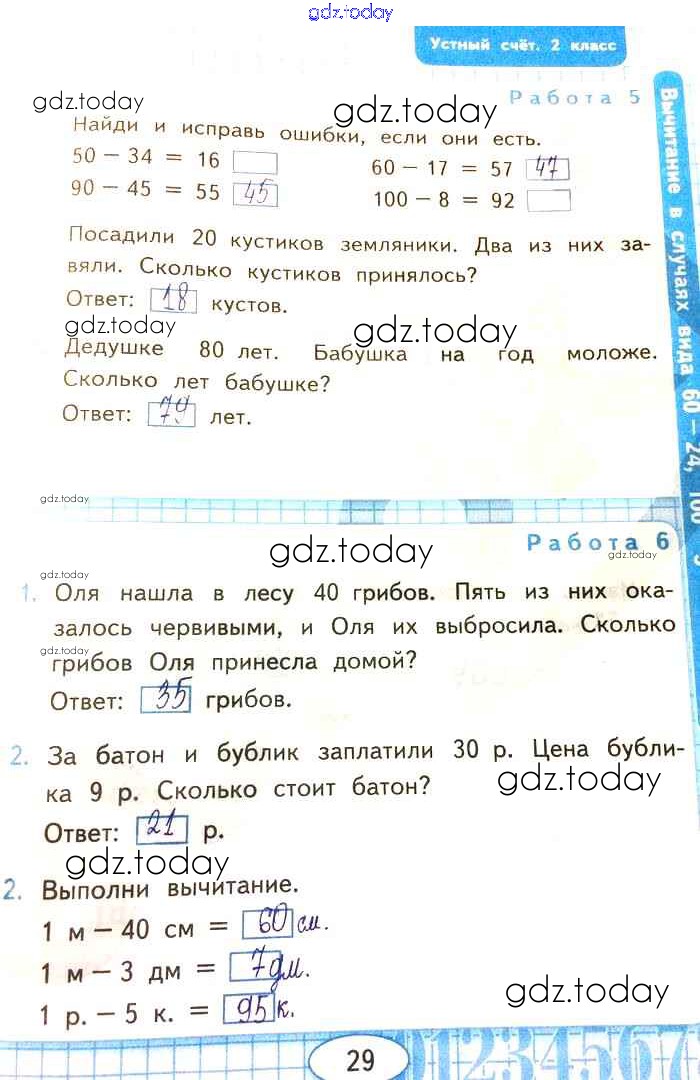 gdz.today
Устный счёт. 2 класс
gdz.today
gdz.today
Работа 5
Найди и исправь ошибки, если они есть.
50 – 34 = 16
60 – 17 = 57 47
90 – 45 = 55 45
100 – 8 = 92
Посадили 20 кустиков земляники. Два из них за-
вяли. Сколько кустиков принялось?
Ответ: 18 кустов.
gdz.today
gdz.today
Дедушке 80 лет. Бабушка на год моложе.
Сколько лет бабушке?
Ответ: 79 лет.
Вычитание в случаях вида 60 – 24, 100
gdz.today
gdz.today
gdz.today
Работа 6
gdz.today
1. Оля нашла в лесу 40 грибов. Пять из них ока-
залось червивыми, и Оля их выбросила. Сколько
gdz.today
грибов Оля принесла домой?
Ответ: 35 грибов.
2. За батон и бублик заплатили 30 р. Цена бубли-
ка 9 р. Сколько стоит батон?
gdz.today
Ответ: 21 р.
gdz.today
2. Выполни вычитание.
1 м – 40 см = 60 см.
1 м – 3 дм = 7 дм.
1 р. – 5 к. = 95 к.
gdz.today
29
1234567